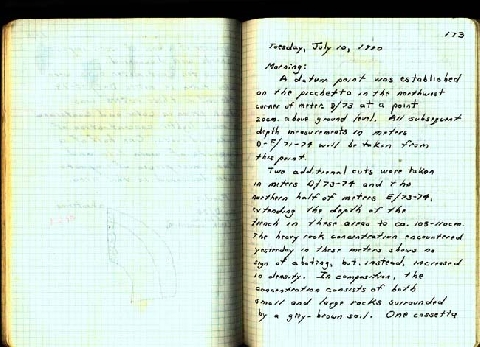 113
Tuesday, July 10, 1990
Morning:
A datum point was established
on the picchetto in the northwest
corner of meter D/73 at a point
20cm. above ground level. All subsequent
depth measurements in meters
D-E/71-74 will be taken from
this point.
Two additional cuts were taken
in meters D/73-74 and the
northern half of meters E/73-74,
extending the depth of the
trench in these areas to ca. 105-110cm.
The heavy rock concentration encountered
yesterday in these meters shows no
sign of abating, but, instead, increased
in density. In composition, the
concentration consists of both
small and large rocks surrounded
by a grey-brown soil. One cassetta